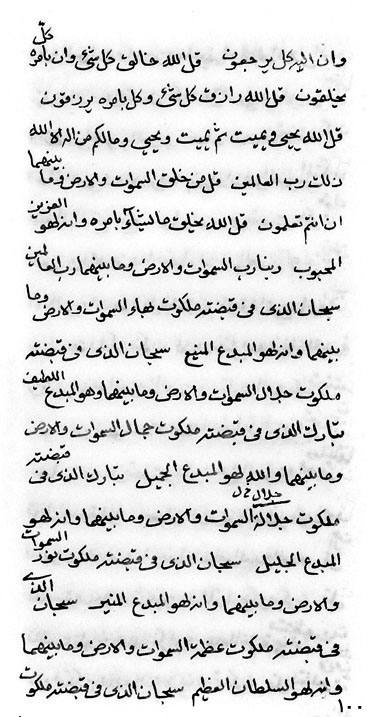 وان اليه كل يرجعون قل الله خالق كل شئ وان بامره كل
يخلقون قل الله رازق كل شئ وكل بامره يرزقون
قل الله يحيي ويميت ثم يميت ويحيي ومالكم من اله الا الله
ذلك رب العالمين قل من خلق السموات والارض وما بينهما
ان انتم تعلمون قل الله يخلق ما يشآء بامره وانه لهو العزيز
المحبوب ربنا رب السموات والارض وما بينهما رب العالمين
سبحان الذى فى قبضته ملكوت بهاء السموات والارض وما
بينهما وانه لهو المبدع المنيع سبحان الذى فى قبضته
ملكوت جلال السموات والارض وما بينهما وهو المبدع اللطيف
تبارك الذى فى قبضته ملكوت جمال السموات والارض
وما بينهما والله لهو المبدع الجميل تبارك الذى فى قبضته
ملكوت جلالة السموات والارض وما بينهما وانه لهو
المبدع الجليل سبحان الذى فى قبضته ملكوت نور السموات
والارض وما بينهما وانه لهو المبدع المنير سبحان الذى
فى قبضته ملكوت عظمة السموات والارض وما بينهما
وانه لهو السلطان العظيم سبحان الذى فى قبضته ملكوت
١٠٠